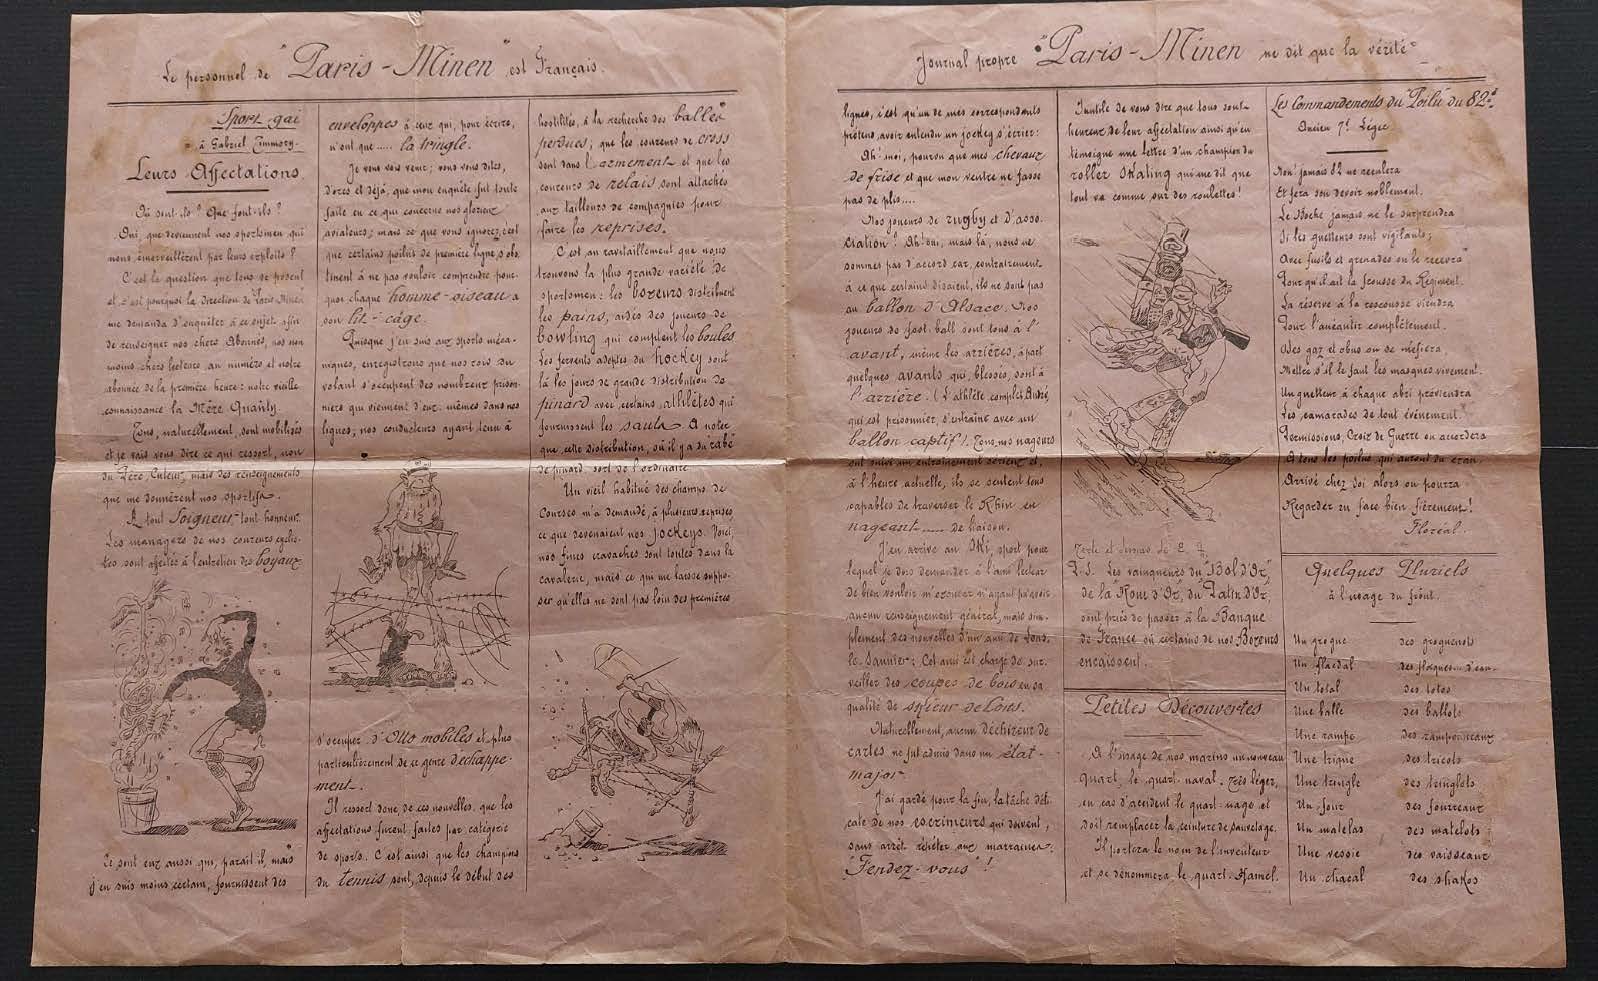 Le personnel de "Paris-Minen" est Français.
Sport gai
à Gabriel Timmory.
Leurs Affectations.
Où sont-ils? Que font-ils?
Oui, que deviennent nos sportsmen qui
nous émerveillèrent par leurs exploits?
C'est la question que tous se posent
et c'est pourquoi la direction de Paris-Minen
me demanda d'enquêter à ce sujet afin
de renseigner nos chers Abonnés, nos non
moins chers lecteurs au numéro et notre
abonnée de la première heure: notre vieille
connaissance la Mère Quanty.
Tous, naturellement, sont mobilisés
et je vais vous dire ce qui ressort, non
du Père Cuteur, mais des renseignements
que me donnèrent nos sportifs.
A tout Soigneur tout honneur.
Les managers de nos coureurs cyclis-
tes sont affectés à l'entretien des boyaux
Ce sont eux aussi qui, paraît-il, mais
j'en suis moins certain, fournissent des
enveloppes à ceux qui, pour écrire,
n'ont que..... la tringle.
Je vous vois venir; vous vous dites,
d'ores et déjà, que mon enquête fut toute
faite en ce qui concerne nos glorieux
aviateurs; mais ce que vous ignorez, c'est
que certains poilus de première ligne s'obs-
tinent à ne pas vouloir comprendre pour-
quoi chaque homme-oiseau a
son lit-cage.
Puisque j'en suis aux sports méca-
niques, enregistrons que nos rois du
volant s'occupent des nombreux prison-
niers qui viennent d'eux-mêmes dans nos
lignes; nos conducteurs ayant tenu à
s'occuper d'Otto mobiles et plus
particulièrement de ce genre d'échappe-
ment.
Il ressort donc, de ces nouvelles, que les
affectations furent faites par catégorie
de sports. C'est ainsi que les champions
du tennis sont, depuis le début des
hostilités, à la recherche des balles
perdues; que les coureurs de cross
sont dans l'armement et que les
coureurs de relais sont attachés
aux tailleurs de compagnies pour
faire les reprises.
C'est au ravitaillement que nous
trouvons la plus grande variété de
sportsmen: les boxeurs distribuent
les pains, aidés des joueurs de
bowling qui comptent les boules
Les fervents adeptes du hockey sont
là les jours de grande distribution de
pinard avec certains athlètes qui
fournissent les sauts. A noter
que cette distribution, où il y a du rabe
de pinard sort de l'ordinaire
Un vieil habitué des champs de
Courses m'a demandé, à plusieurs reprises
ce que devenaient nos jockeys. Voici,
nos fines cravaches sont toutes dans la
cavalerie, mais ce qui me laisse suppo-
ser qu'elles ne sont pas loin des premières
Journal propre "Paris-Minen" ne dit que la vérité
lignes, c'est qu'un de mes correspondants
prétend avoir entendu un jockey s'écrier:
Ah! moi, pourvu que mes chevaux
de frise et que mon ventre ne fasse
pas de plis....
Nos joueurs de rugby et d'asso-
ciation? Ah! oui, mais là, nous ne
sommes pas d'accord car, contrairement
à ce que certains disaient, ils ne sont pas
au ballon d'Alsace. Nos
joueurs de foot-ball sont tous à l'
avant, même les arrières, à part
quelques avants qui, blessés, sont à
l'arrière. (L'athlète complet André,
qui est prisonnier, s'entraîne avec un
ballon captif). Tous nos nageurs
ont suivi un entraînement sérieux et,
à l'heure actuelle, ils se sentent tous
capables de traverser le Rhin en
nageant..... de liaison.
J'en arrive au ski, sport pour
lequel je dois demander à l'ami lecteur
de bien vouloir m'excuser n'ayant pu avoir
aucun renseignement général, mais sim-
plement des nouvelles d'un ami de Lons-
le-Saunier: Cet ami est chargé de sur-
veiller des coupes de bois en sa
qualité de skieur de Lons.
Naturellement, aucun déchireur de
cartes ne fut admis dans un état-
major.
J'ai gardé pour la fin, la tâche déli-
cate de nos escrimeurs qui doivent,
sans arrêt répéter aux marraines:
"Fendez-vous"!
Inutile de vous dire que tous sont
heureux de leur affectation ainsi qu'en
témoigne une lettre d'un champion du
roller skating qui me dit que
tout va comme sur des roulettes!
Texte et dessins de E. G.
P.S. Les vainqueurs du "Bol d'Or",
de la "Roue d'Or", du "Patin d'Or",
sont priés de passer à la Banque
de France où certains de nos Boxeurs
encaissent.
Petites Découvertes
A l'usage de nos marins un nouveau
quart, le quart naval. Très léger,
en cas d'accident le quart-nage et
doit remplacer la ceinture de sauvetage.
Il portera le nom de l'inventeur
et se dénommera le quart-Hamel.
Les Commandements du Poilu du 82e
Ancien 7e Léger
Non! jamais 82 ne reculera
Et fera son devoir noblement.
Le Boche jamais ne le surprendra
Si les guetteurs sont vigilants;
Avec fusils et grenades on le recevra
Pour qu'il ait la frousse du Régiment.
La réserve à la rescousse viendra
Pour l'anéantir complètement.
Des gaz et obus on se méfiera,
Mettre s'il le faut les masques vivement.
Un guetteur à chaque abri préviendra
Les camarades de tout évènement.
Permissions, Croix de Guerre on accordera
A tous les poilus qui auront du cran
Arrivé chez soi alors on pourra
Regarder en face bien fièrement!
Floréal.
Quelques Pluriels
à l'usage du front.
Un grogue des groguenots
Un flacdal des flaques... d'eau
Un total des totos
Une balle des ballots
Une rampe des ramponneaux
Une trique des tricots
Une tringle des tringlots
Un four des fourreaux
Un matelas des matelots
Une vessie des vaisseaux
Un chacal des shakos